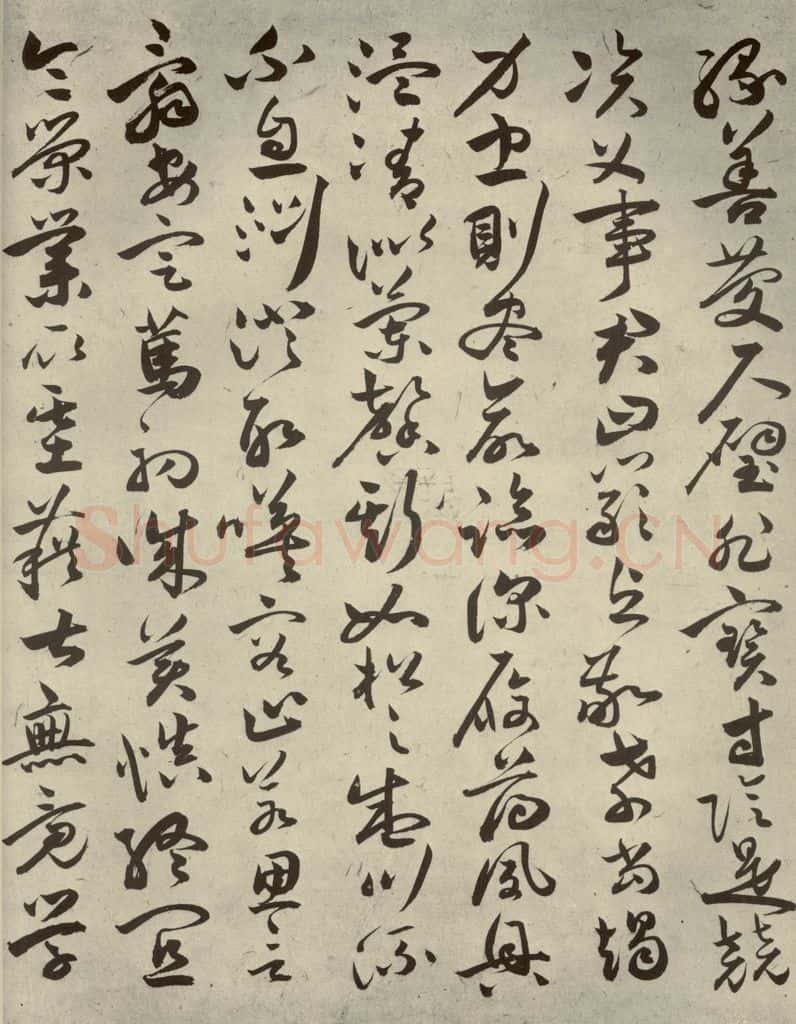 緣善慶尺璧非寶寸陰是競
資父事君曰嚴與敬孝當竭
力忠則盡命臨深履薄夙興
溫清似蘭馨斯如松之盛川流
不息淵澄取暎容止若思言
辭安定篤初誠美慎終宜
令榮業所基藉甚無竟學
Shufawang.CN